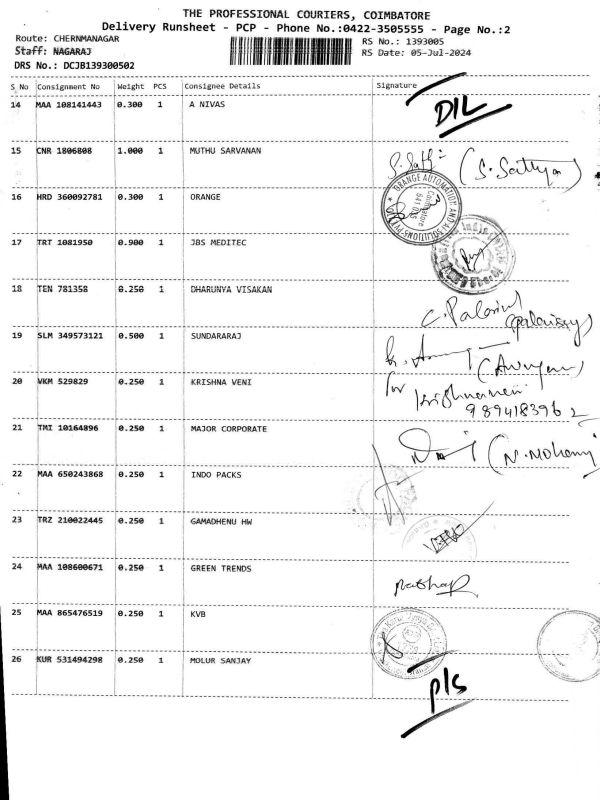 THE PROFESSIONAL COURIERS, COIMBATORE
Delivery Runsheet - PCP - Phone No.:0422-3505555 - Page No.:2
Route: CHERNMANAGAR
RS No.: 1393005
Staff: NAGARAJ
RS Date: 05-Jul-2024
DRS No.: DCJB139300502
S No Consignment No Weight PCS Consignee Details Signature
14 MAA 108141443 0.300 1 A NIVAS DIL
15 CNR 1806808 1.000 1 MUTHU SARVANAN
16 HRD 360092781 0.300 1 ORANGE
17 TRT 1081950 0.900 1 JBS MEDITEC
18 TEN 781358 0.250 1 DHARUNYA VISAKAN
19 SLM 349573121 0.500 1 SUNDARARAJ
20 VKM 529829 0.250 1 KRISHNA VENI for
9894183962
21 TMI 10164896 0.250 1 MAJOR CORPORATE
22 MAA 650243868 0.250 1 INDO PACKS
23 TRZ 210022445 0.250 1 GAMADHENU HW
24 MAA 108600671 0.250 1 GREEN TRENDS
25 MAA 865476519 0.250 1 KVB
26 KUR 531494298 0.250 1 MOLUR SANJAY P/S